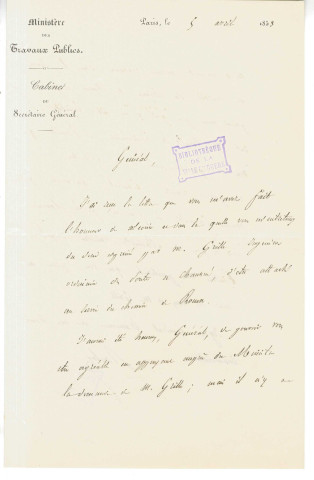 Ministère
DES
Travaux Publics.
Cabinet
DU
Secrétaire Général.
Paris, le 5 avril 1849
Général,
BIBLIOTHÈQUE
DE LA
J'ai reçu la lettre que vous m'avez fait
l'honneur de m'écrire et dans laquelle vous m'entretenez
du désir exprimé par M. Grille, Ingénieur
ordinaire des Ponts et Chaussées, d'être attaché
au chemin de
J'aurais été heureux, Général, de pouvoir vous
être agréable en appuyant auprès du Ministre
la demande de M. Grille; mais il n'y a